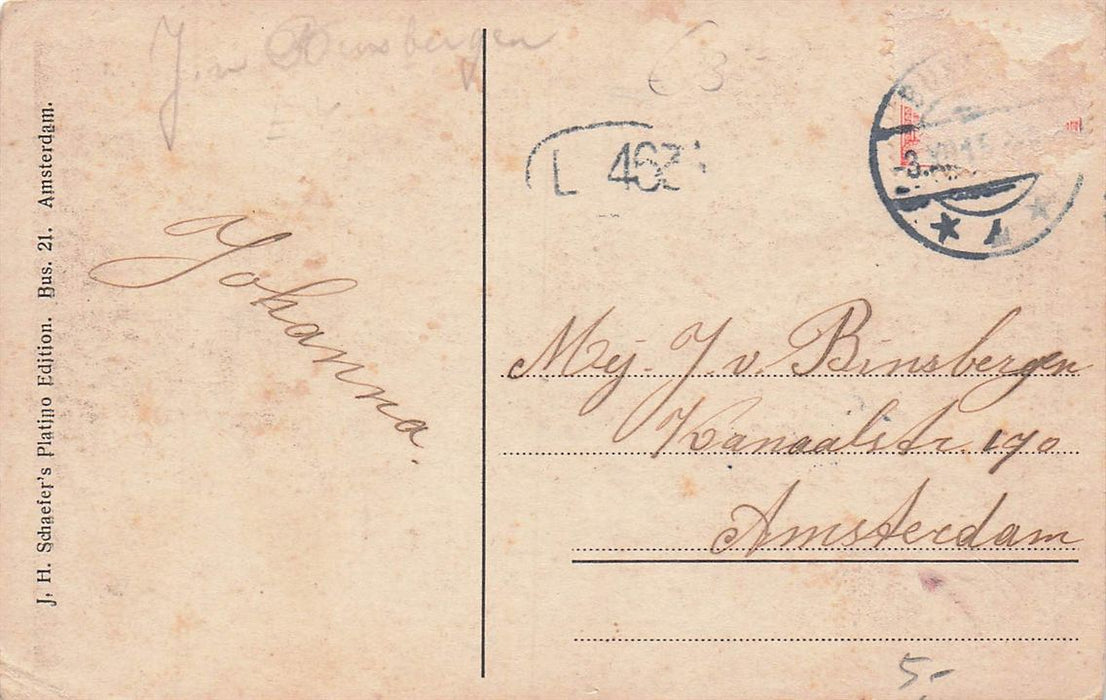 J. v Binsbergen
63
L 463
3.XII.1
Johanna.
Mej. J. v. Binsbergen
Kanaalstr. 190
Amsterdam
5,-
J. H. Schaefer's Platino Edition. Bus. 21. Amsterdam.